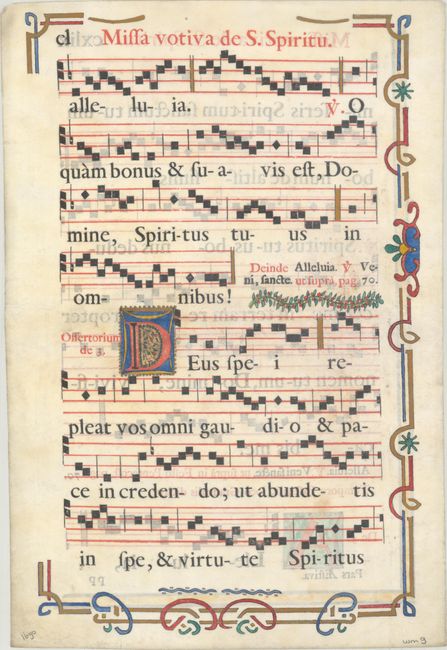 cl Missa votiva de S. Spiritu.
alle- lu- ia. ℣. O
quàm bonus & su- a- vis est, Do-
mine, Spiri-tus tu- us in
om- nibus!
Deinde Alleluia. ℣. Ve-
ni, sancte. ut suprà pag. 70.
Offertorium
de 3.
DEus spe- i re-
pleat vos omni gau- di-o & pa-
ce in creden- do; ut abunde- tis
in spe, & virtu- te Spi-ritus
1690